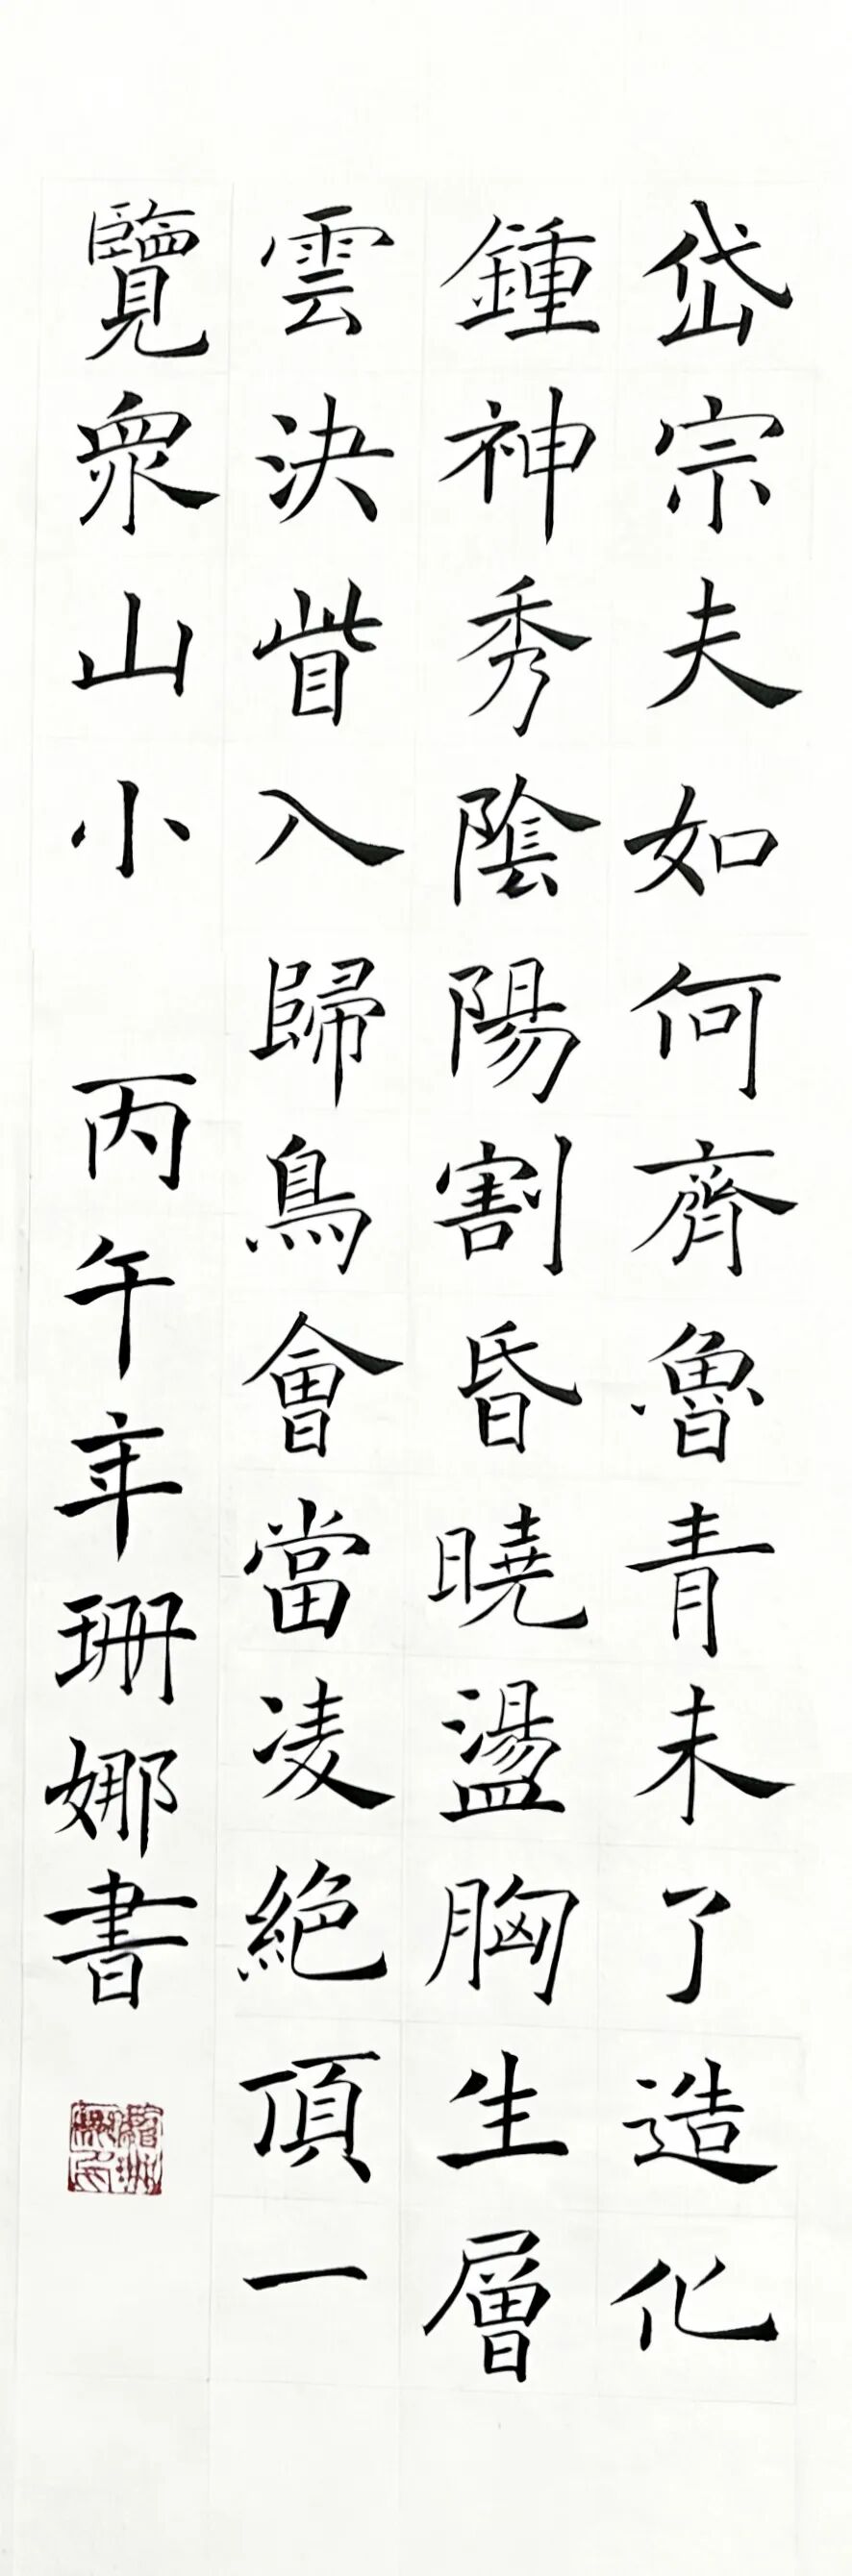 岱宗夫如何齊魯青未了造化
鍾神秀陰陽割昏曉盪胸生層
雲決眥入歸鳥會當凌絕頂一
覽眾山小 丙午年珊娜書